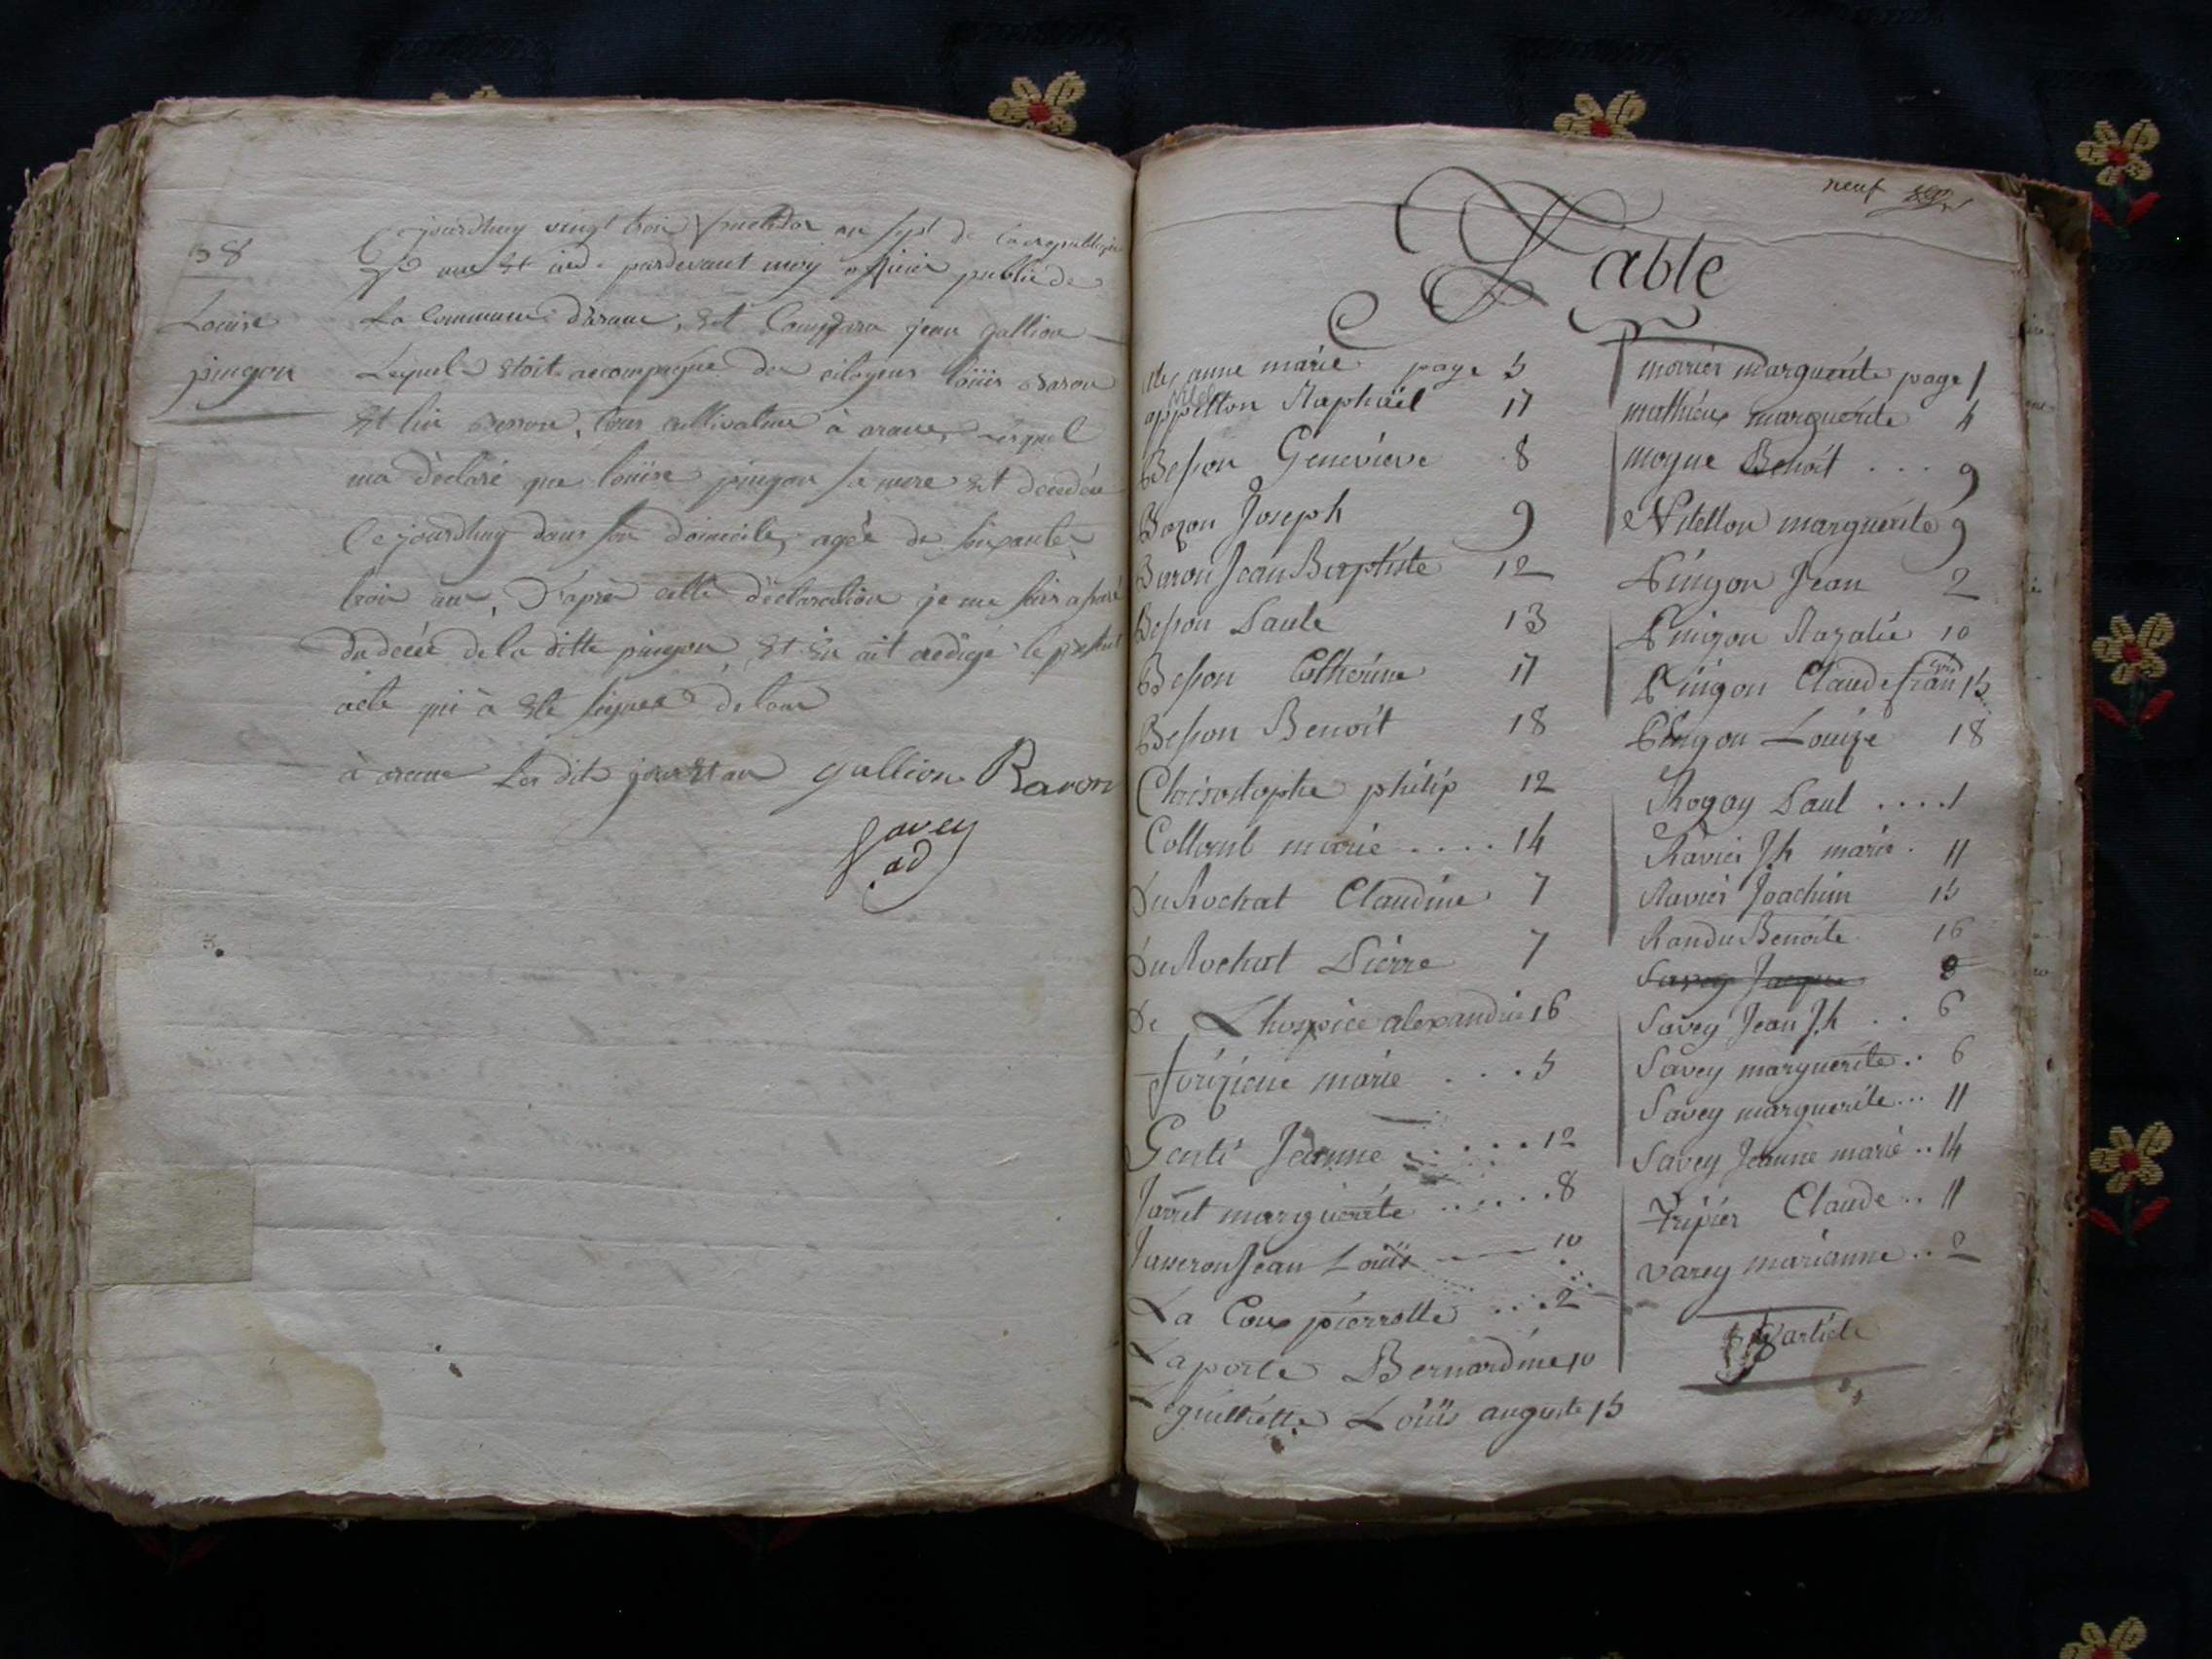 38
Louise
pingon
Cejourdhuy vingt trois fructidor an sept de la republique
une et ind. pardevant moy officier public de
La Commune d'arane, est Comparu jean gallion
Lequel Etoit accompagné des citoyens loüis Baron
Et cultivateurs à arane, Lequel
ma dèclaré que louise pingon sa mere est decedée
Cejourdhuy dans son domicile, agée de soixante
trois ans, D'apres cette dèclaration je me suis assuré
du decès de la ditte pingon, Et En ait redigé le present
acte qui à Eté signé de tous
à arane Les dits jour Et an gallion Baron
Savey
ad
neuf
Table
anne marie page 5
appellon Raphäel 17
Besson Geneviève 8
Bozon Joseph 9
Buron Jean Baptiste 12
Besson Paule 13
Besson Catherine 17
Besson Benoit 18
Chrisostophe philip 12
Collomb marie .... 14
DuRochat Claudine 7
DuRochat Pierre 7
De Lhospice alexandrie 16
marie ... 5
Genti Jeanne ..... 12
Jarret marguerite ..... 8
Jasseron Jean Loüis 10
La Coux pierrotte ... 2
Laporte Bernardine 10
Loüis auguste 15
morrier marguerite page 1
mathieux marguerite 4
moyne Benoit ... 9
Nitellon marguerite 9
Pingon Jean 2
Pingon Nazalie 10
Pingon Claude fran 15
Pingon Louize 18
Rogay Paul .... 1
Ravier J.h marie. 11
Ravier Joachim 15
Randu Benoite 16
Savey Jacque
Savey Jean J.h .. 6
Savey marguerite .. 6
Savey marguerite... 11
Savey Jeanne marie .. 14
Tripier Claude .. 11
varey marianne .. 2
article